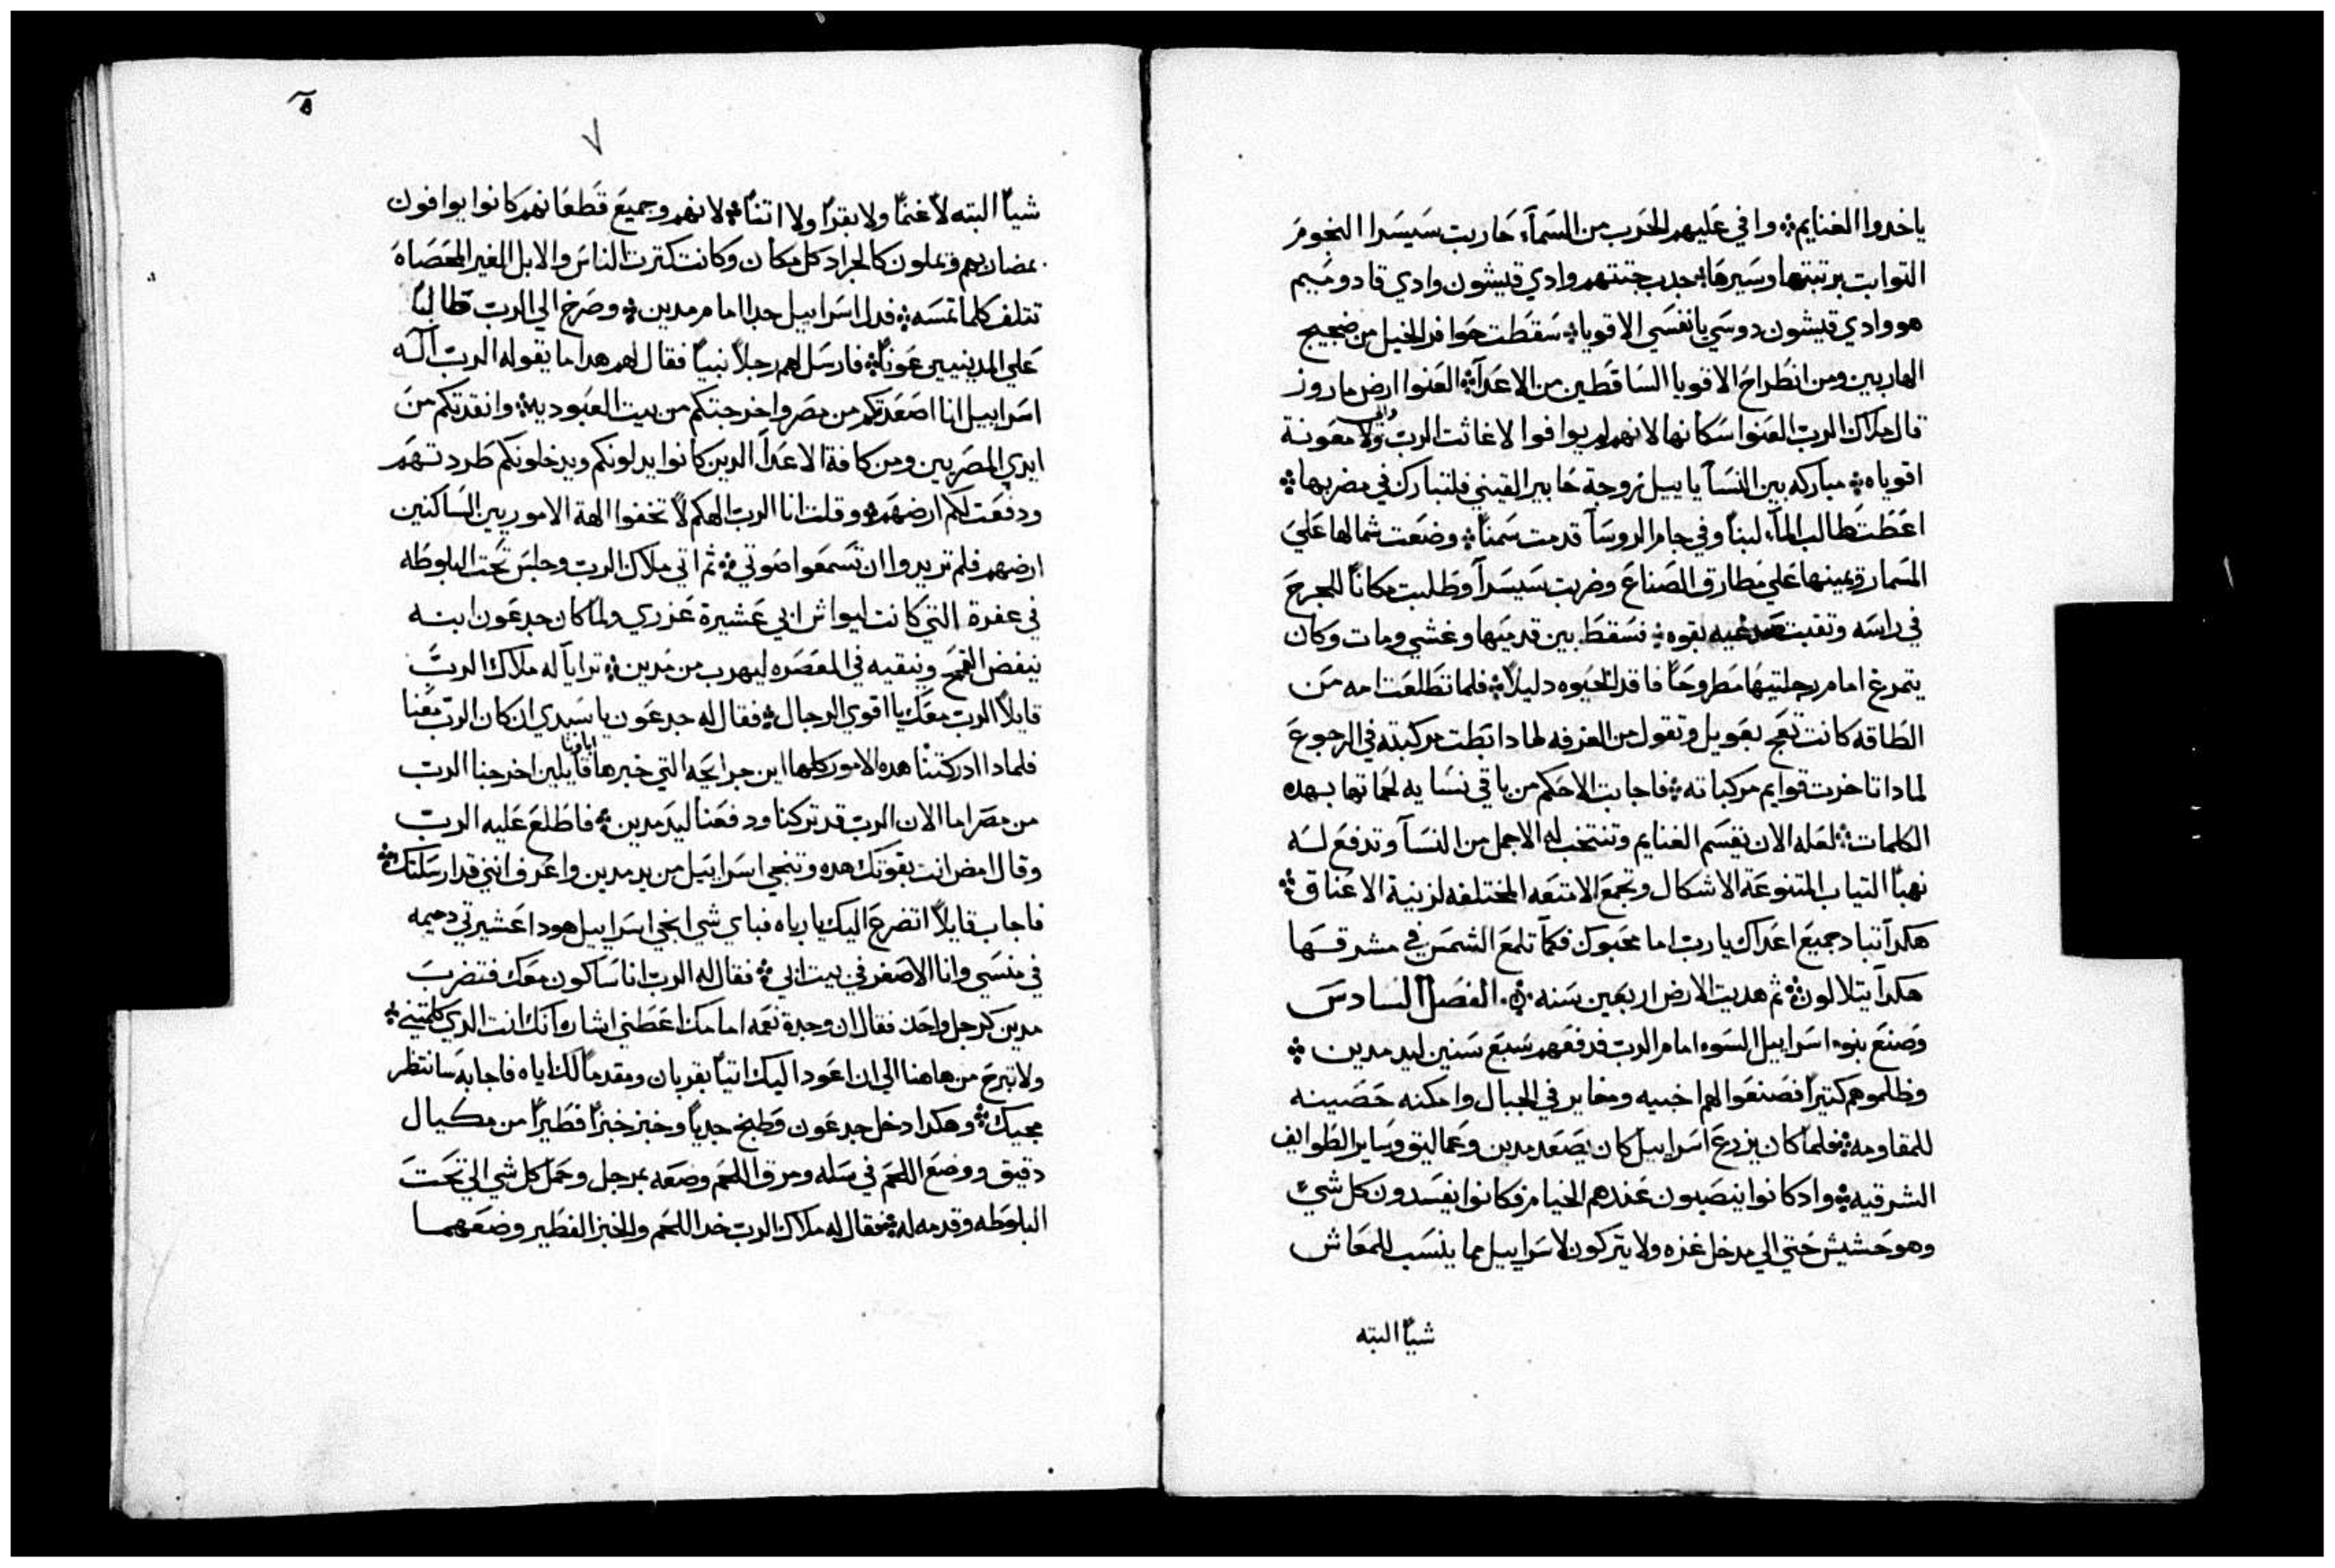 ياخدوا الغنايم ܀ وافي عليهم الحرب من السمآء حاربت سيسرا النجوم
التوابت برتبتها وسيرها ܀ جدب جتتهم وادي قيشون وادي قادوميم
هو وادي قيشون دوسي يا نفسي الاقويا ܀ سقطت حوافر الخيل من ضجيج
الهاربين ومن انطراح الاقويا الساقطين من الاعدآ ܀ العنوا ارض ماروز
قال ملاك الرب العنوا سكانها لانهم لم يوافوا لاغاثت الرب ولا معونة
اقوياه ܀ مباركه بين النسآ ياييل زوجة حابير القيني فلتبارك في مضربها ܀
اعطت طالب المآء لبناً وفي جام الروسآ قدمت سمناً ܀ وضعت شمالها علي
المسمار ويمينها علي مطارق الصناع وضربت سيسرآ وطلبت مكاناً للجرح
في راسه وتقبت صدغيه بقوه ܀ فسقط بين قدميها وغشي ومات وكان
يتمرغ امام رجلتيها مطروحاً فاقد الحيوه دليلاً ܀ فلما تطلعت امه من
الطاقه كانت تعج بعويل وتقول من الغرفه لمادا ابطت مركبته في الرجوع
لمادا تاخرت قوايم مركباته ܀ فاجابت الاحكم من باقي نسايه لحماتها بهده
الكلمات ܀ لعله الان يقسم الغنايم وتنتخب له الاجمل من النسآ وتدفع لسه
نهباً التياب المتنوعة الاشكال وتجمع الامتعه المختلفه لزينة الاعناق ܀
هكدآ تباد جميع اعداك يا رب اما محبوك فكما تلمع الشمس في مشرقها
هكدآ يتلالون ܀ ثم هديت الارض اربعين سنه ܀ الفصل السادس
وصنع بنوا اسراييل السوء امام الرب فدفعهم سبع سنين ليد مدين ܀
وظلموهم كتيراً فصنعوا لهم اخبيه ومغاير في الجبال وامكنه حصينه
للمقاومه ܀ فلما كان يزرع اسراييل كان يصعد مدين وعماليق وساير الطوايف
الشرقيه ܀ واد كانوا ينصبون عندهم الخيام فكانوا يفسدون كل شيً
وهو حشيش حتي الي مدخل غزه ولا يتركون لاسراييل مما ينسب للمعاش
شياً البته
٥
٧
شياً البته لا غنماً ولا بقراً ولا اتناً ܀ لانهم وجميع قطعانهم كانوا يوافون
بمضاربهم ويملون كالجراد كل مكان وكانت كترت الناس والابل الغير المحصاه
تتلف كلما تمسه ܀ فدل اسراييل جداً امام مدين ܀ وصرخ الي الرب طالباً
علي المدينيين عوناً ܀ فارسل لهم رجلاً نبياً فقال لهم هدا ما يقوله الرب آله
اسراييل انا اصعدتكم من مصر واخرجتكم من بيت العبوديه ܀ وانقدتكم من
ايدي المصريين ومن كافة الاعدآ الدين كانوا يدلونكم ويدخلونكم طردتهم
ودفعت لكم ارضهم ܀ وقلت انا الرب الهكم لا تخفوا الهة الاموريين الساكنين
ارضهم فلم تريدوا ان تسمعوا صوتي ܀ ثم اتي ملاك الرب وجلس تحت البلوطه
في عفرة التي كانت ليواش ابي عشيرة عزري ولما كان جدعون ابنه
ينفض القمح وينقيه في المعصره ليهرب من مدين ܀ ترايا له ملاك الرب
قايلاً الرب معك يا اقوي الرجال ܀ فقال له جدعون يا سيدي ان كان الرب معنا
فلمادا ادركتنا هده الامور كلها اين جرايحه التي خبرها اباونا قايلين اخرجنا الرب
من مصر اما الان الرب قد تركنا ودفعنا ليد مدين ܀ فاطلع عليه الرب
وقال امض انت بقوتك هده وتنجي اسراييل من يد مدين واعرف انني قد ارسلتك ܀
فاجاب قايلاً اتضرع اليك يا رباه فباي شي انجي اسراييل هودا عشيرتي دميمه
في منسي وانا الاصغر في بيت ابي ܀ فقال له الرب انا ساكون معك فتضرب
مدين كرجل واحد فقال ان وجدة نعمه امامك اعطني اشاره انك انت الدي كلمتني ܀
ولا تبرح من هاهنا الي ان اعود اليك اتياً بقربان ومقدماً لك اياه فاجابه سانتظر
مجيك ܀ وهكدا دخل جدعون وطبخ جدياً وخبز خبزاً فطيراً من مكيال
دقيق ووضع اللحم في سله ومرق اللحم وضعه بمرجل وحمل كل شي الي تحت
البلوطه وقدمه له ܀ فقال له ملاك الرب خد اللحم والخبز الفطير وضعهما